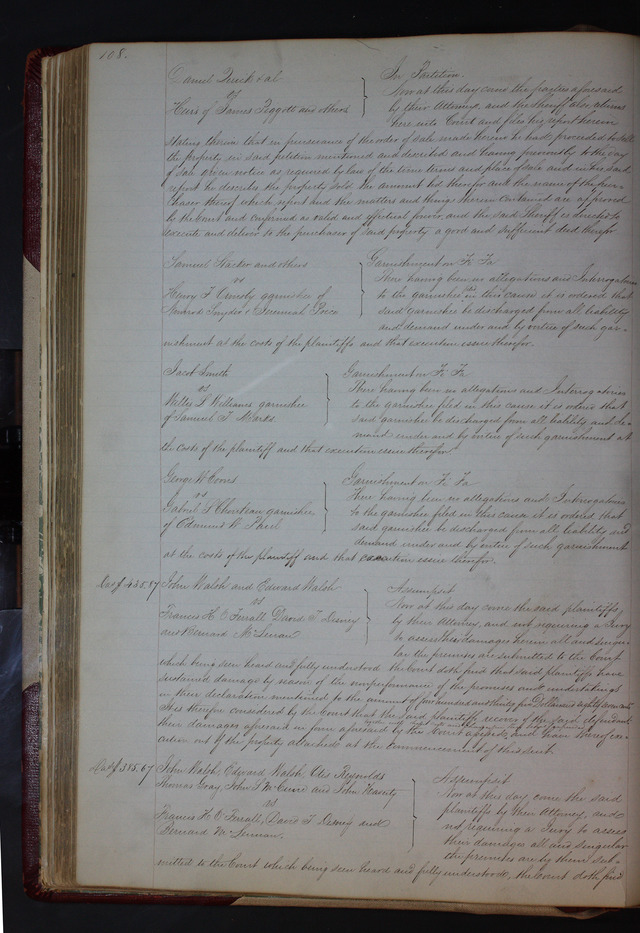 108.
Daniel Quick & al
vs
Heirs of James Piggott and others
In Partition.
Now at this day came the parties aforesaid
by their Attorneys, and the Sheriff also returns
here into Court and files his report herein
stating therein that in pursuance of the order of sale made herein he had proceeded to sell
the property in said petition mentioned and described and having previously to the day
of sale given notice as required by law of the time terms and place of sale and in his said
report he describes the property sold the amount bid therefor and the name of the pur-
chaser thereof which report and the matters and things therein contained are approved
by the Court and confirmed as valid and effectual forever, and the said Sheriff is directed to
execute and deliver to the purchaser of said property a good and sufficient deed therefor
Samuel Hacker and others
vs
Henry F. Ormsby garnishee of
Snyder & Jeremiah Price
Garnishment on Fi Fa
There having been no allegations and Interrogatories
to the garnishee in this cause it is ordered that
said garnishee be discharged from all liability
and demand under and by virtue of such gar-
nishment at the costs of the plaintiffs and that execution issue therefor.
Jacob Smith
vs
Willis L Williams garnishee
of Samuel T. Marks.
Garnishment on Fi Fa
There having been no allegations and Interrogatories
to the garnishee filed in this cause it is ordered that
said garnishee be discharged from all liability and de-
mand under and by virtue of such garnishment at
the costs of the plaintiff and that execution issue therefor
George W Coons
vs
Gabriel S Chouteau garnishee
of Edmund W. Paul
Garnishment on Fi Fa
There having been no allegations and Interrogatories
to the garnishee filed in this cause it is ordered that
said garnishee be discharged from all liability and
demand under and by virtue of such garnishment
at the costs of the plaintiff and that execution issue therefor.
435.87
John Walsh and Edward Walsh
vs
Francis H. E Ferrall David T Disney
and Bernard McLernan
Assumpsit
Now at this day come the said plaintiffs,
by their Attorney, and not requiring a Jury
to assess their damages herein all and singu-
lar the premises are submitted to the Court
which being seen heard and fully understood the Court doth find that said plaintiffs have
sustained damage by reason of the nonperformance of the promises and undertakings
in their declaration mentioned to the amount of four hundred and thirty five Dollars & eighty seven cents
It is therefore considered by the Court that the said plaintiffs recover of the said defendants
their damages aforesaid in form aforesaid by the Court assessed, and have thereof exe-
cution out of the property attached at the commencement of this suit.
385.67
John Walsh, Edward Walsh, Otis Reynolds
Thomas Gray, John S McCune and John
vs
Francis H. E Ferrall, David T Disney and
Bernard McLernan.
Assumpsit
Now at this day come the said
plaintiffs by their Attorney, and
not requiring a Jury to assess
their damages all and singular
the premises are by them sub-
mitted to the Court which being seen heard and fully understood, the Court doth find